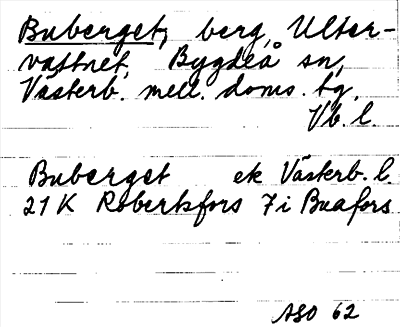 Buberget, berg, Ulter-
vattnet, Bygdeå sn,
Västerb. mell. doms. tg.
Vb. l.
Buberget ek Västerb. l.
21 K Robertsfors 7 i Buafors
ASO 62